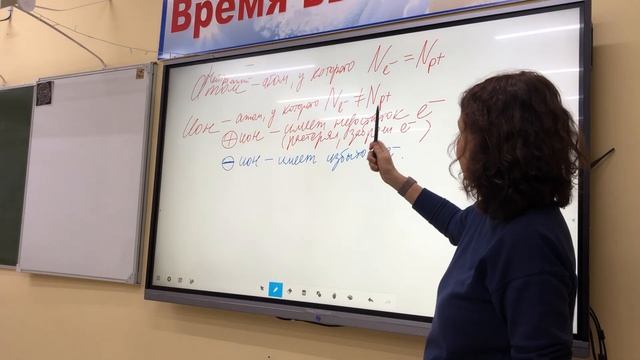 Время вы
Нейтральный
Атом – атом, у которого Ne⁻ = Np+
Ион – атом, у которого Ne⁻ ≠ Np+
⊕ ион – имеет недостаток e⁻
(потерял, забрали e⁻)
⊖ ион – имеет избыто